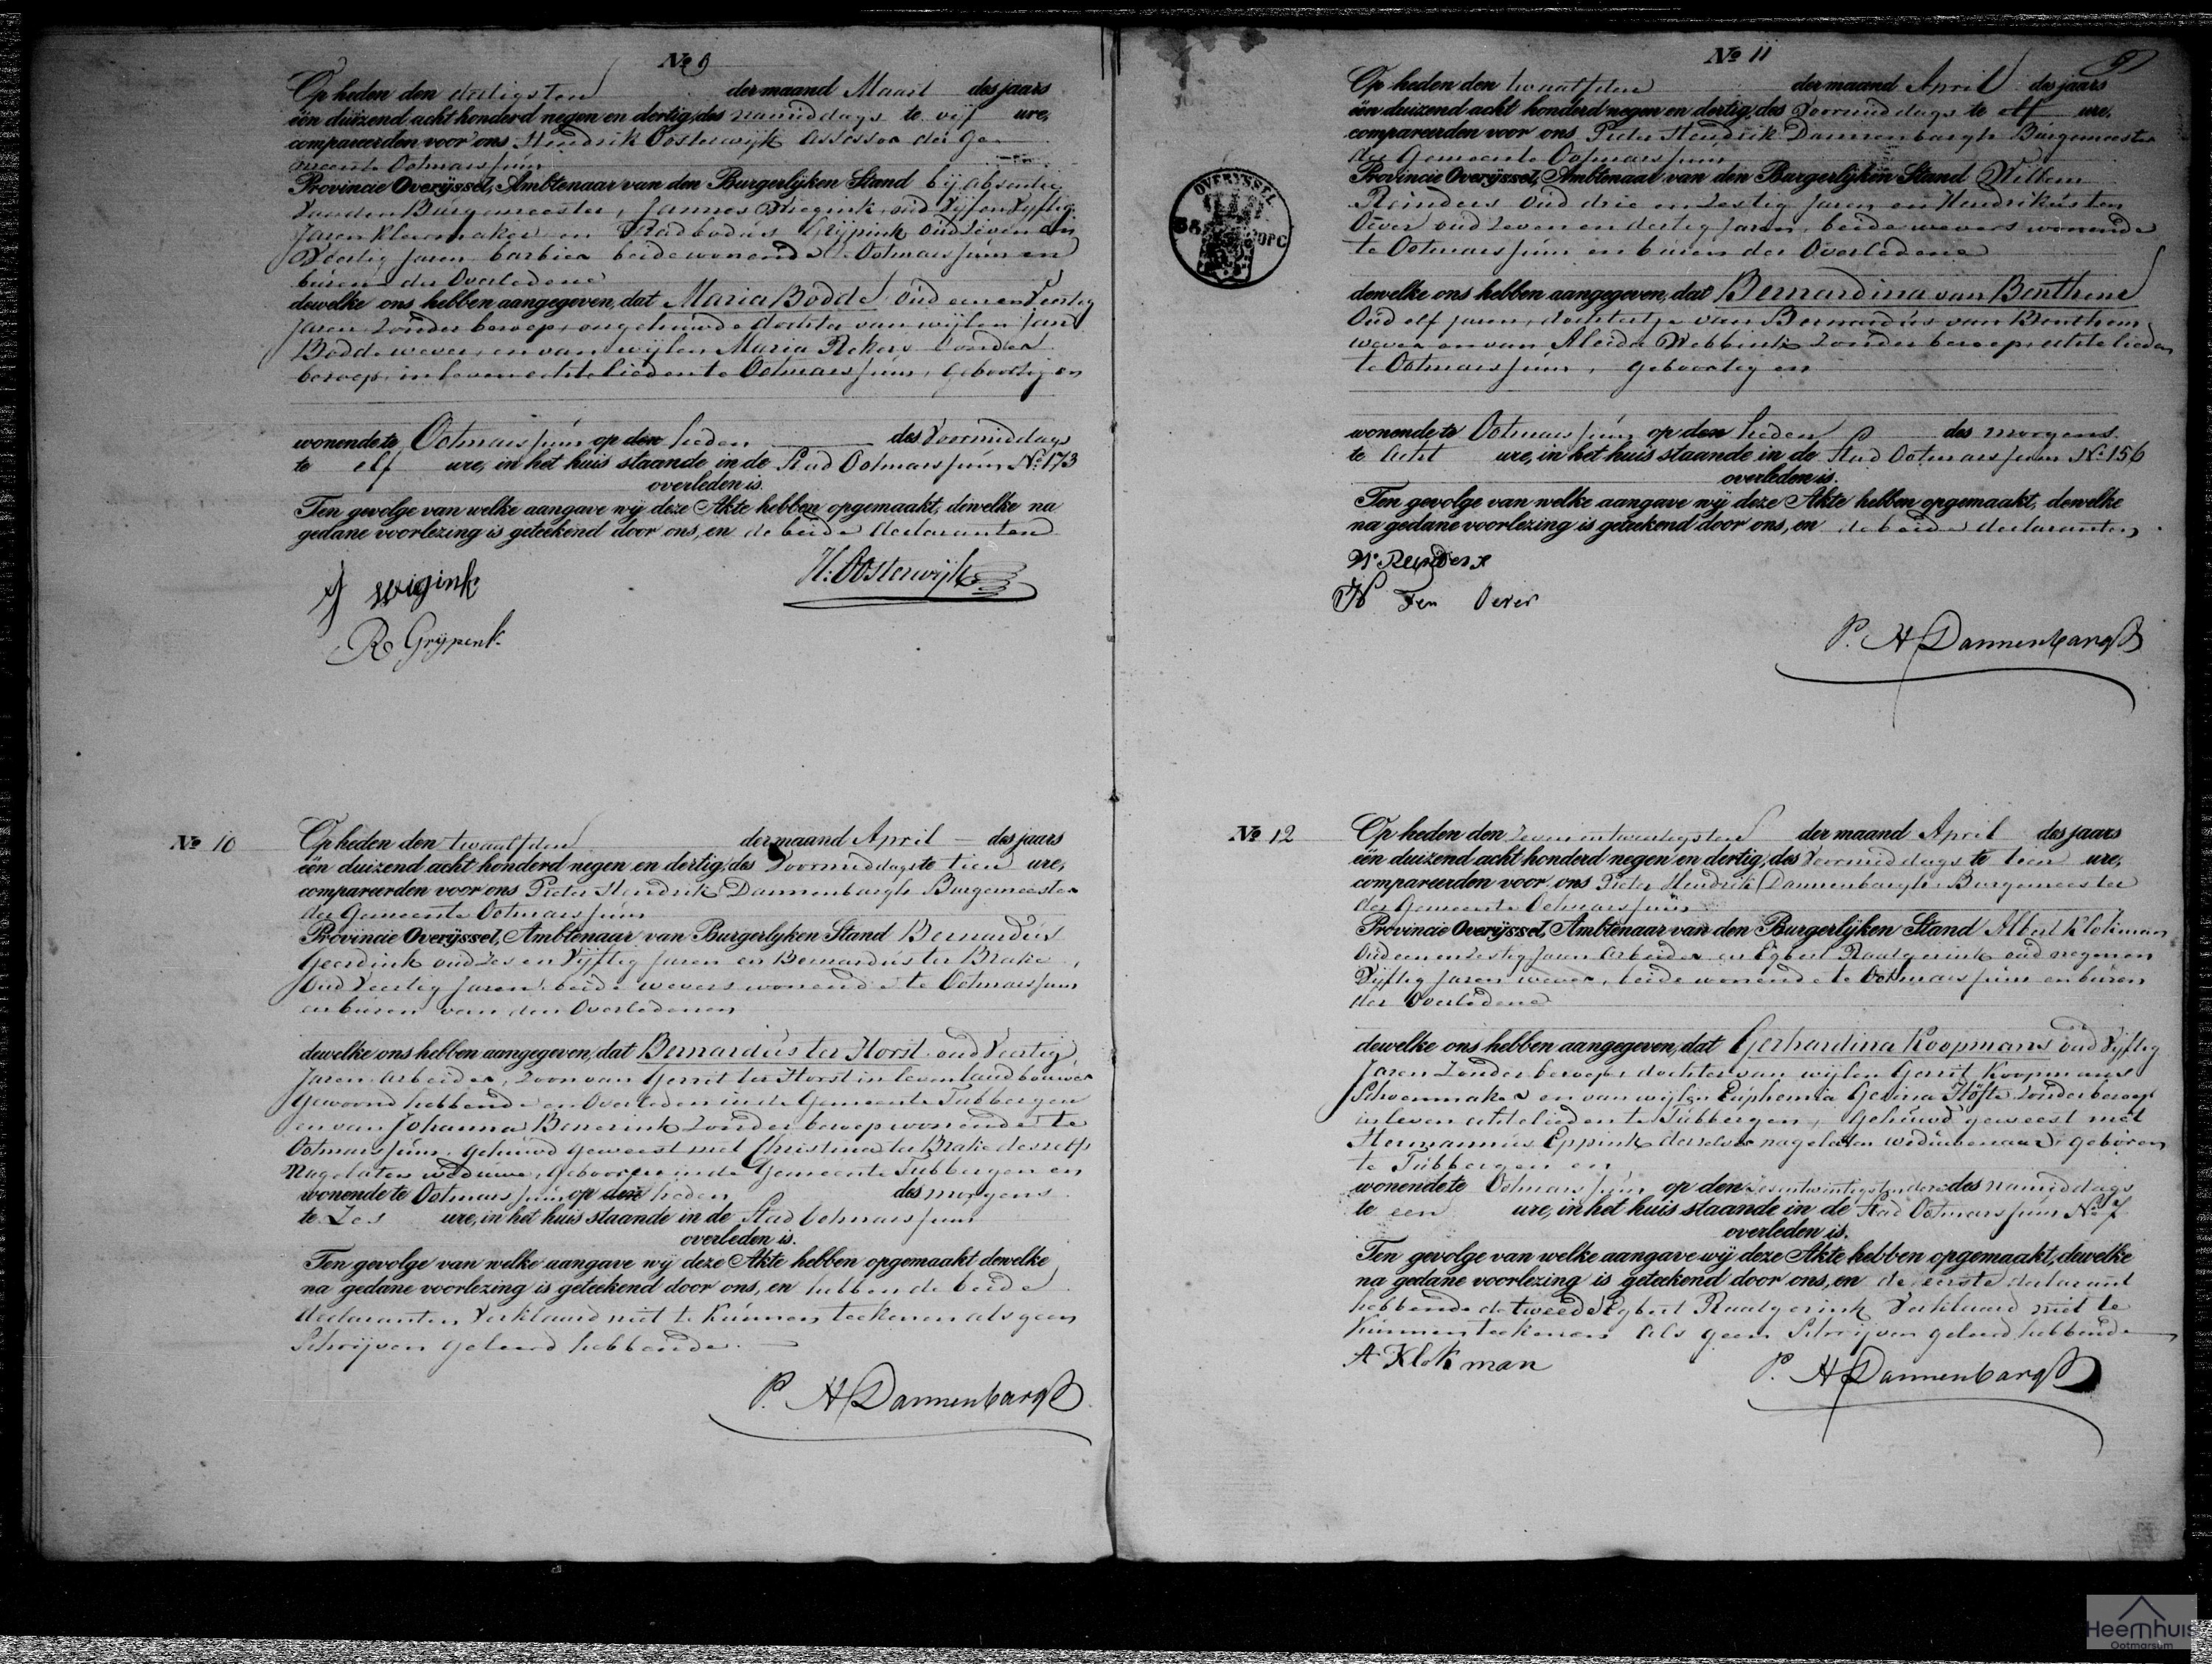 No 9
Op heden den dertigsten der maand Maart des jaars
één duizend acht honderd negen en dertig, des namiddags te vijf ure,
compareerden voor ons Hendrik Oosterwijk Assessor der Ge-
meente Ootmarssum
Provincie Overÿssel, Ambtenaar van den Burgerlyken Stand bij absentie
van den Burgemeester, Jannes Wiegink, oud Vijf en Vijftig
Jaren Kleermaker en Radbodus Grijpink oud Zeven en
Veertig Jaren barbier beide wonende te Ootmarssum en
buren der Overledene
dewelke ons hebben aangegeven, dat Maria Bodde oud een en
Jaren Zonder beroep, ongehuwde dochter van wijlen Jan
Bodde wever, en van wijlen Maria Rekers Zonder
beroep, in leven echtelieden te Ootmarssum, geboortig en
wonende te Ootmarssum op den heden des Voormiddags
te elf ure, in het huis staande in de Stad Ootmarssum No 173
overleden is.
Ten gevolge van welke aangave wÿ deze Akte hebben opgemaakt, dewelke na
gedane voorlezing is geteekend door ons, en de beide declaranten
J Wigink
H: Oosterwijk
R Grÿpenk.
No 10
Op heden den twaalfden der maand April des jaars
één duizend acht honderd negen en dertig, des Voormiddags te tien ure,
compareerden voor ons Pieter Hendrik Dannenbargh Burgemeester
der Gemeente Ootmarssum
Provincie Overÿssel, Ambtenaar van Burgerlyken Stand Bernardus
Geerdink oud Zes en Vijftig Jaren en Bernardus ter Brake,
Oud Veertig Jaren, beide wevers wonende te Ootmarssum
en buren van den Overledenen
dewelke ons hebben aangegeven, dat Bernardus ter Horst oud Veertig
Jaren Arbeider, Zoon van Gerrit ter Horst in leven landbouwer
gewoond hebbende en Overleden in de Gemeente Tubbergen
en van Johanna Bonerink Zonder beroep wonende te
Ootmarssum, gehuwd geweest met Christina ter Brake deszelfs
Nagelaten weduwe, geboortig in de Gemeente Tubbergen en
wonende te Ootmarssum op den heden des morgens
te Zes ure, in het huis staande in de Stad Ootmarssum
overleden is.
Ten gevolge van welke aangave wÿ deze Akte hebben opgemaakt dewelke
na gedane voorlezing is geteekend door ons, en hebben de beide
declaranten Verklaard niet te Kunnen teekenen als geen
Schrijven geleerd hebbende.
P. H Dannenbargh
No 11
9
Op heden den twaalfden der maand April des jaars
één duizend acht honderd negen en dertig, des Voormiddags te elf ure,
compareerden voor ons Pieter Hendrik Dannenbargh Burgemeester
der Gemeente Ootmarssum
Provincie Overÿssel, Ambtenaar van den Burgerlyken Stand Willem
Reinders Oud drie en Zestig Jaren en Hendrikus ten
Oever oud Zeven en dertig Jaren, beide wevers wonende
te Ootmarssum en buren der Overledene
OVERYSSEL
dewelke ons hebben aangegeven, dat Bernardina van Benthem
Oud elf jaren, dochtertje van Bernardus van Benthem
wever en van Aleida Webbink Zonder beroep, echtelieden
te Ootmarssum, geboortig en
wonende te Ootmarssum op den heden des morgens
te Acht ure, in het huis staande in de Stad Ootmarssum No 156
overleden is.
Ten gevolge van welke aangave wÿ deze Akte hebben opgemaakt, dewelke
na gedane voorlezing is geteekend door ons, en de beide declaranten
W Reinders
H Ten Oever
P. H Dannenbargh
No 12
Op heden den Zeven en twentigsten der maand April des jaars
één duizend acht honderd negen en dertig, des Voormiddags te tien ure,
compareerden voor ons Pieter Hendrik Dannenbargh Burgemeester
der Gemeente Ootmarssum
Provincie Overÿssel, Ambtenaar van den Burgerlyken Stand Albert Klokman
Oud een en Zestig Jaren Arbeider en Egbert Raatgerink oud negen en
Vijftig Jaren wever, beide wonende te Ootmarssum en buren
der Overledene
dewelke ons hebben aangegeven, dat Gerhardina Koopmans oud Vijftig
Jaren Zonder beroep, dochter van wijlen Gerrit Koopmans
Schoenmaker en van wijlen Euphemia Gesina Höfte Zonder beroep
in leven echtelieden te Tubbergen, gehuwd geweest met
Hermannus Eppink derzelver nagelaten weduwenaar, geboren
te Tubbergen en
wonende te Ootmarssum op den Zesentwintigsten dezer des namiddags
te een ure, in het huis staande in de Stad Ootmarssum No 7
overleden is.
Ten gevolge van welke aangave wÿ deze Akte hebben opgemaakt, dewelke
na gedane voorlezing is geteekend door ons, en de eerste declarant
hebbende de tweede Egbert Raatgerink Verklaard niet te
Kunnen teekenen als geen Schrijven geleerd hebbende
A Klokman
P. H Dannenbargh
Heemhuis
Ootmarsum